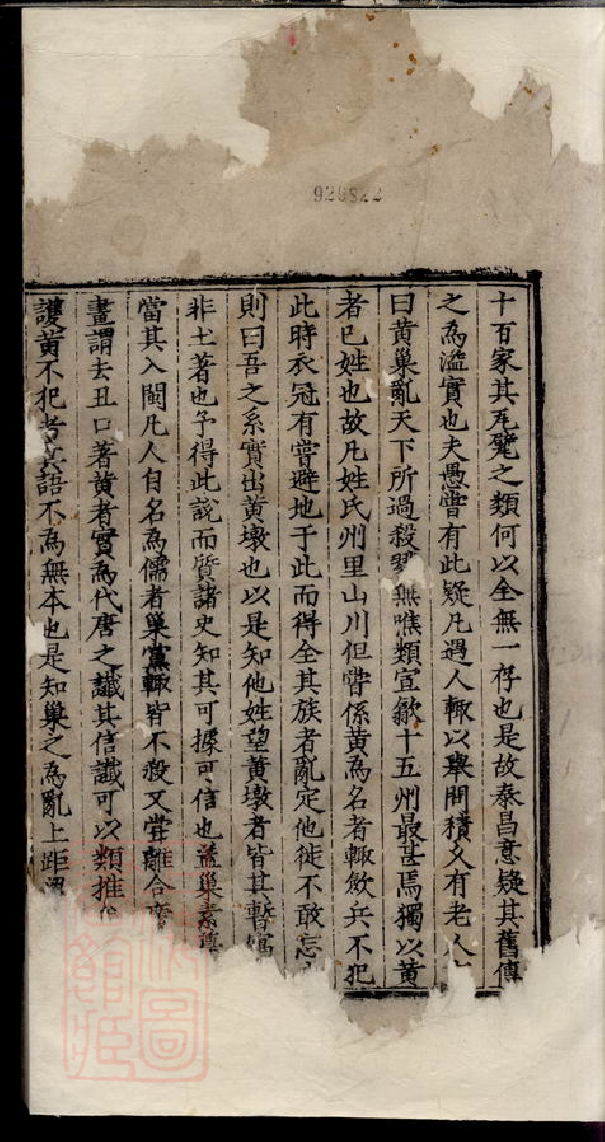 928822
十百家其瓦甓之類何以全無一存也是故泰昌意疑其舊傳
之為濫實也夫愚嘗有此疑凡遇人輙以舉問積久有老人
曰黃巢亂天下所過殺戮無噍類宣歙十五州最甚焉獨以黃
者巳姓也故凡姓氏州里山川但甞係黃為名者輙斂兵不犯
此時衣冠有嘗避地于此而得全其族者亂定他徙不敢忘
則曰吾之系實出黃墩也以是知他姓望黃墩者皆其暫寓
非土著也予得此說而質諸史知其可據可信也盖巢素
當其入閩凡人自名為儒者巢黨輙皆不殺又甞離合唐
畫謂去丑口著黃者實為代唐之讖其信讖可以類推
護黃不犯者其語不為無本也是知巢之為亂上距